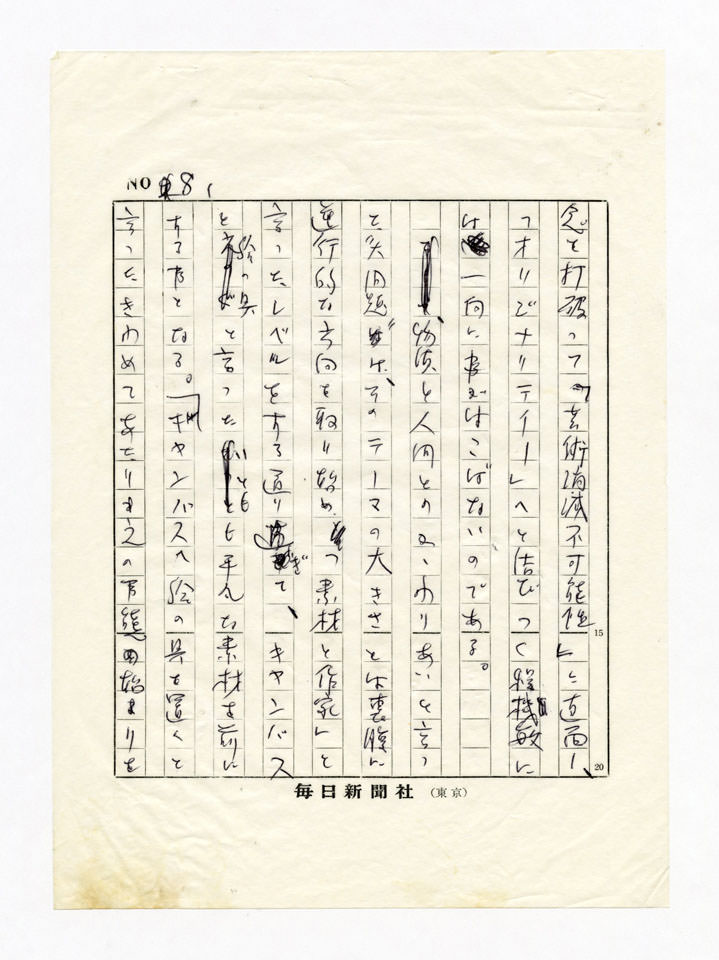 NO 8
念を打破って「芸術消滅不可能性」に直面し、
「オリジナリティー」へと結びつく程機敏に
は一向に事がはこばないのである。
物質と人間とのかかわりあいと言っ
た大問題は、そのテーマの大きさとは裏腹に
逆行的な方向を取り始め、「素材と作家」と
言ったレベルをする通り過ぎて、キャンバス
と絵の具と言ったいとも平凡な素材を前に
する事となる。「キャンバスへ絵の具を置くと
言ったきわめてあたりまえの 始まりを
15
20
毎日新聞社 (東京)